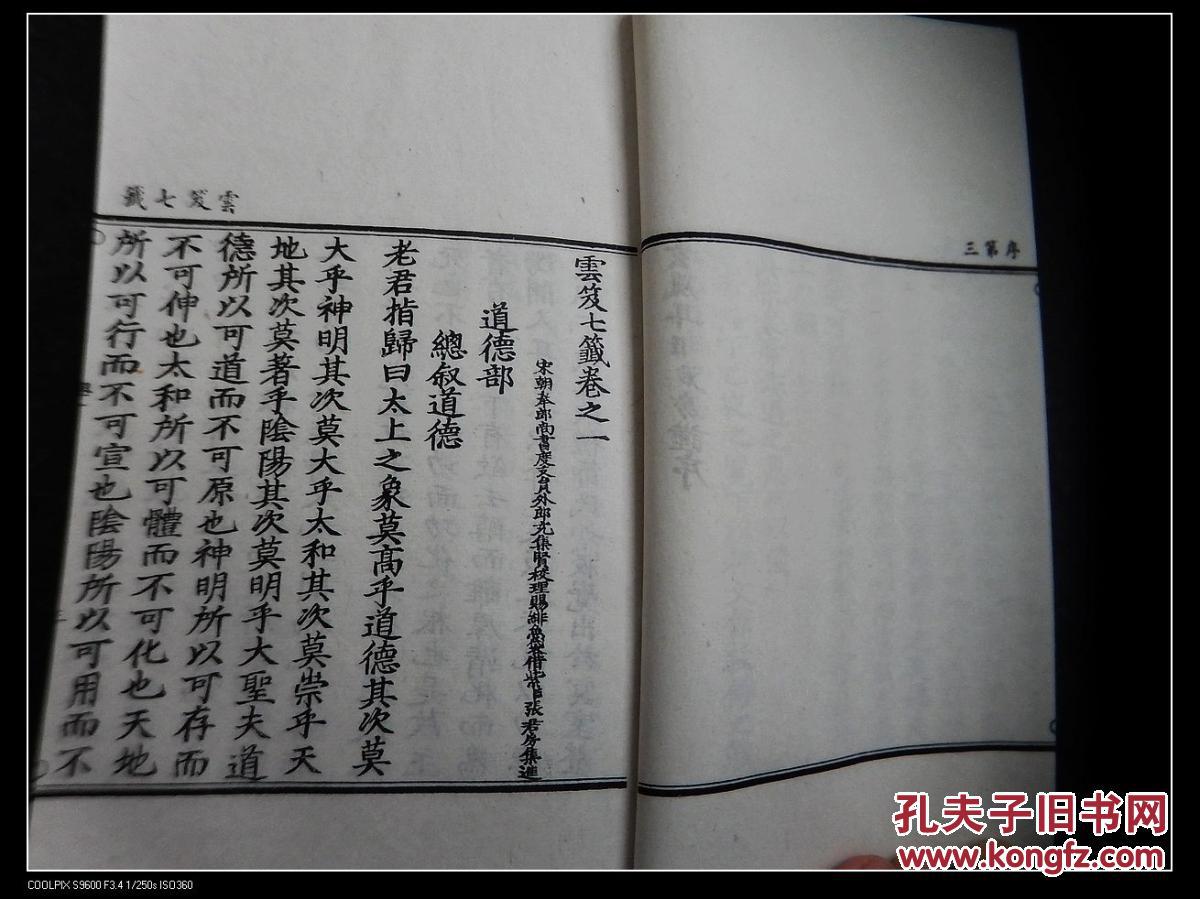 序第三
雲笈七籤
雲笈七籤卷之一
宋朝奉郎尚書度支員外郎充集賢校理賜緋魚袋借紫臣張君房集進
道德部
總叙道德
老君指歸曰太上之象莫高乎道德其次莫
大乎神明其次莫大乎太和其次莫崇乎天
地其次莫著乎陰陽其次莫明乎大聖夫道
德所以可道而不可原也神明所以可存而
不可伸也太和所以可體而不可化也天地
所以可行而不可宣也陰陽所以可用而不
孔夫子旧书网
www.kongfz.com
COOLPIX S9600 F3.4 1/250s ISO360